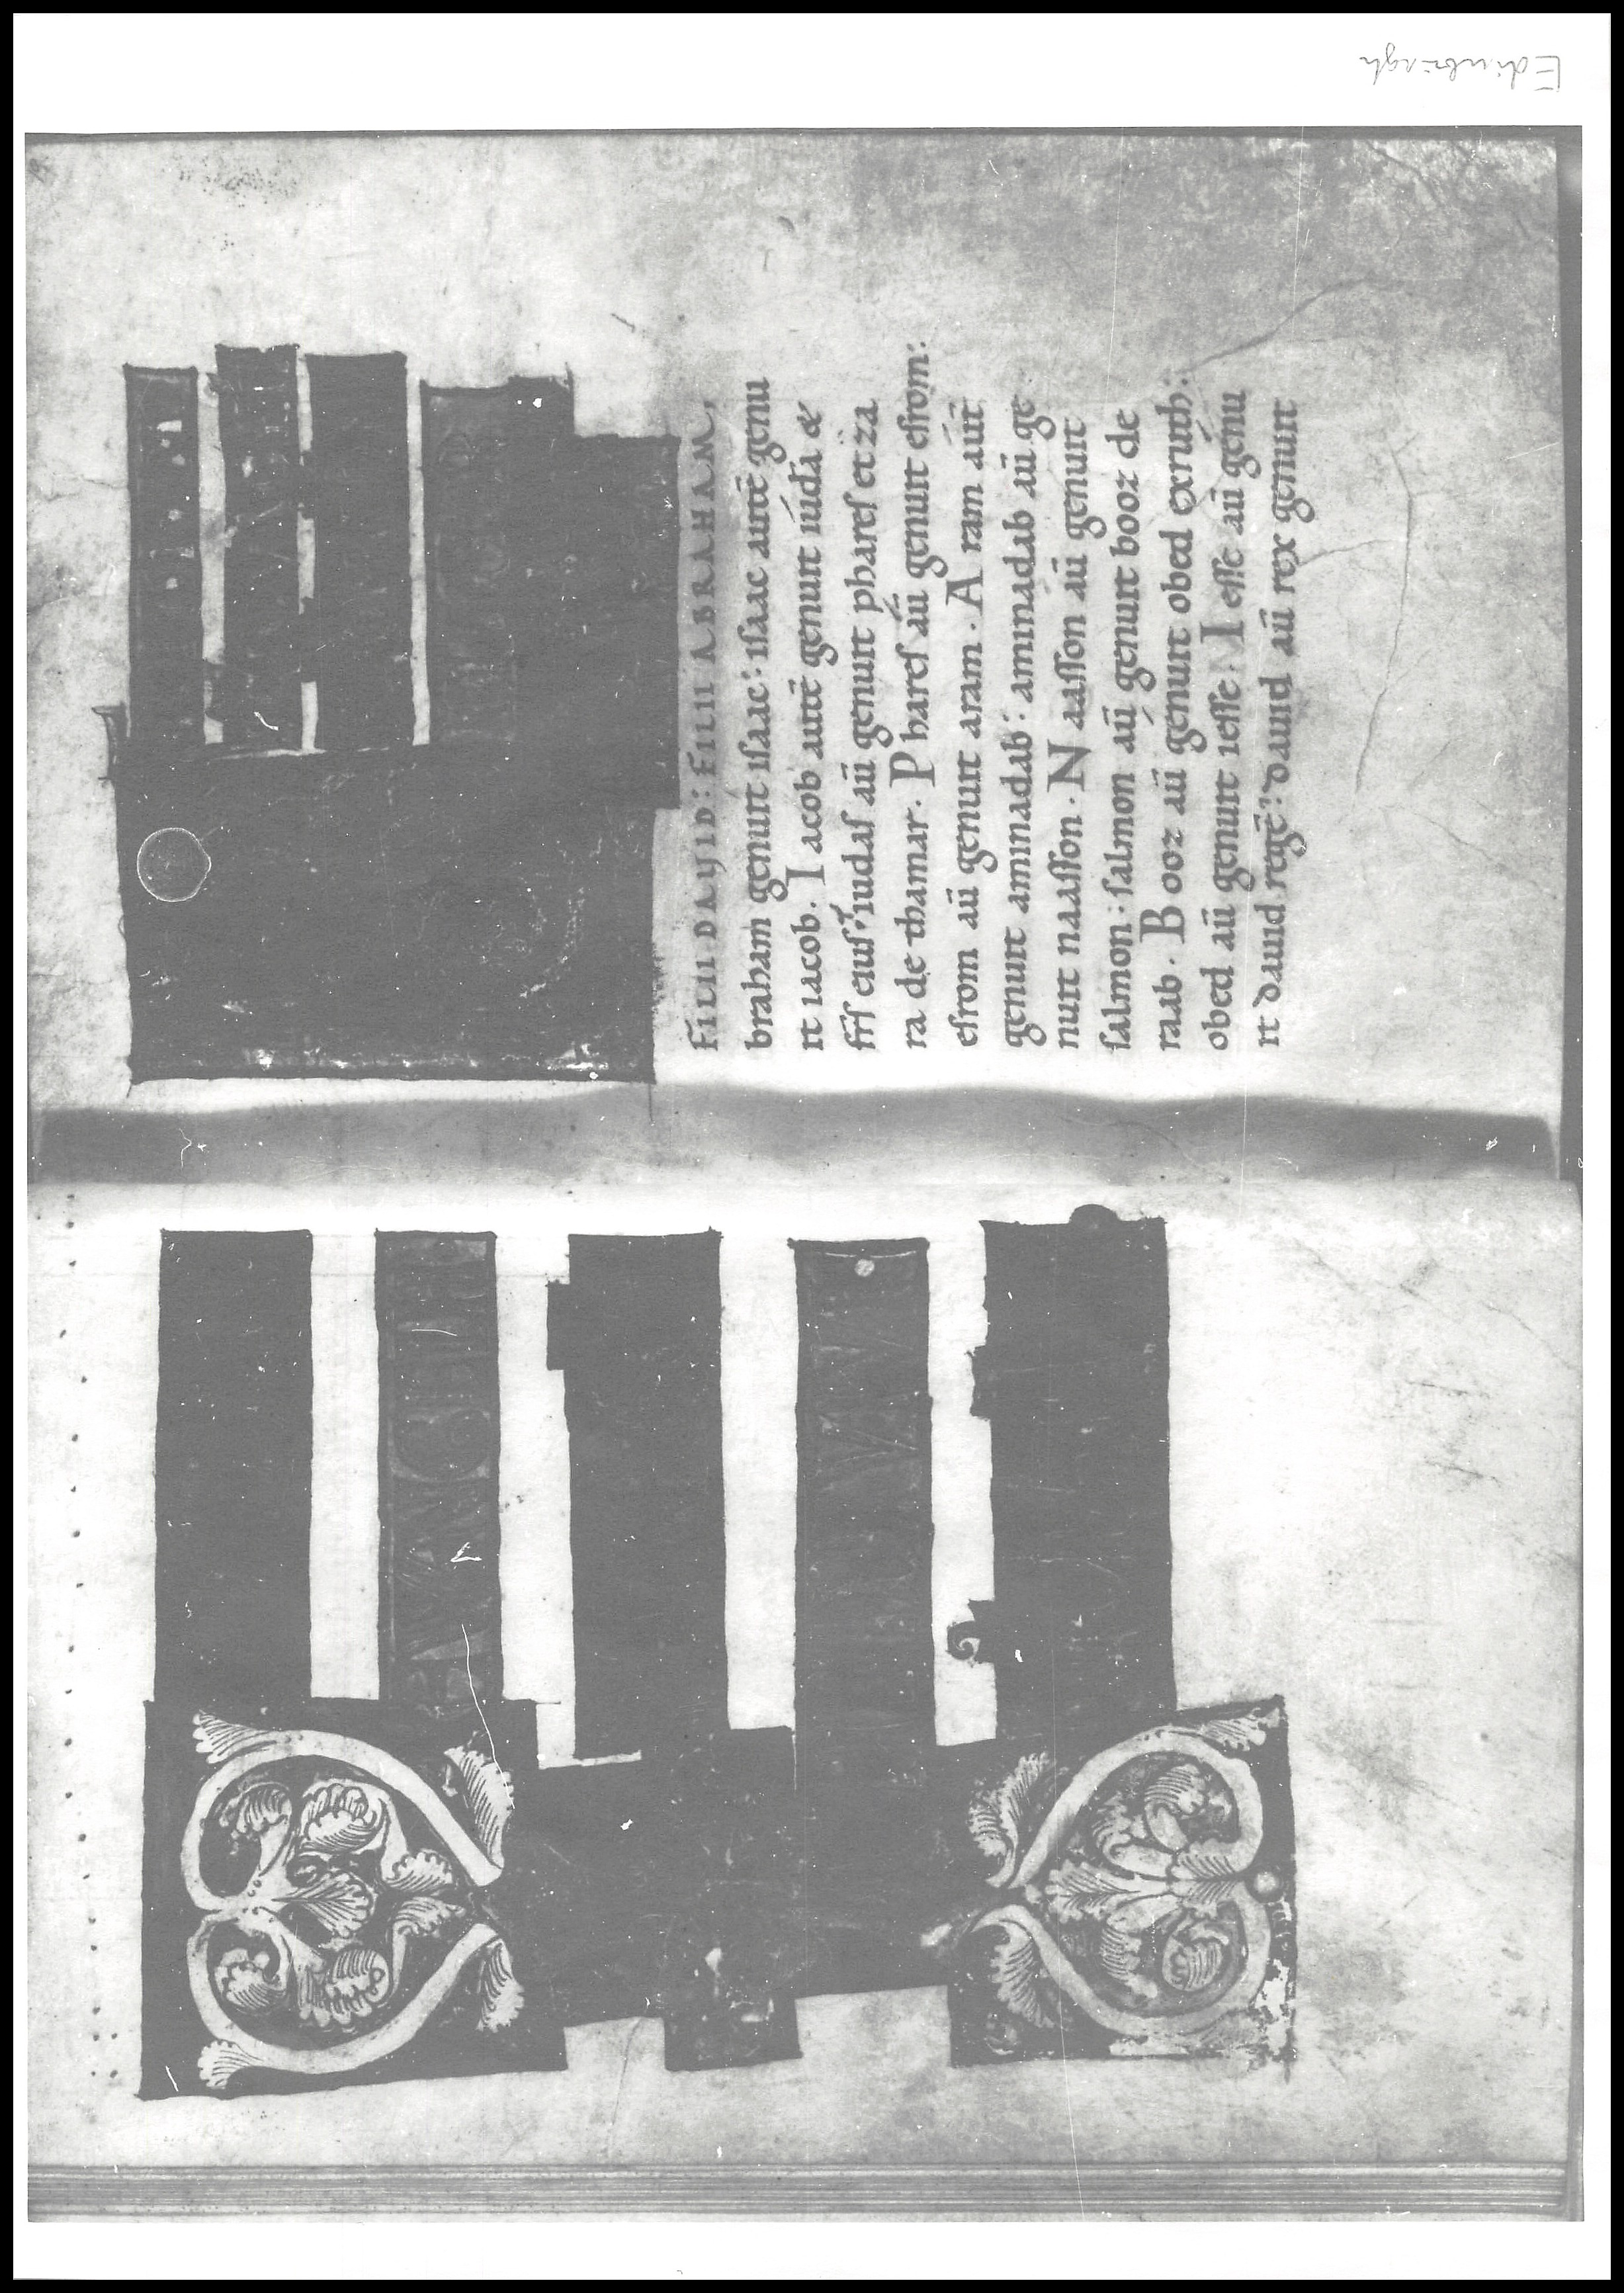 Edinburgh
FILII DAVID: FILII ABRAHAM,
braham genuit isaac: isaac autē genu
it iacob. Iacob autē genuit iudā &
frīs eius: iudas aū genuit phares et za
ra de thamar. Phares aū genuit esrom:
esrom aū genuit aram. Aram aūt
genuit aminadab: aminadab aū ge
nuit naasson. Naasson aū genuit
salmon: salmon aū genuit booz de
raab. Booz aū genuit obed exruth:
obed aū genuit iesse. Iesse aū genu
it dauid regē: dauid aū rex genuit